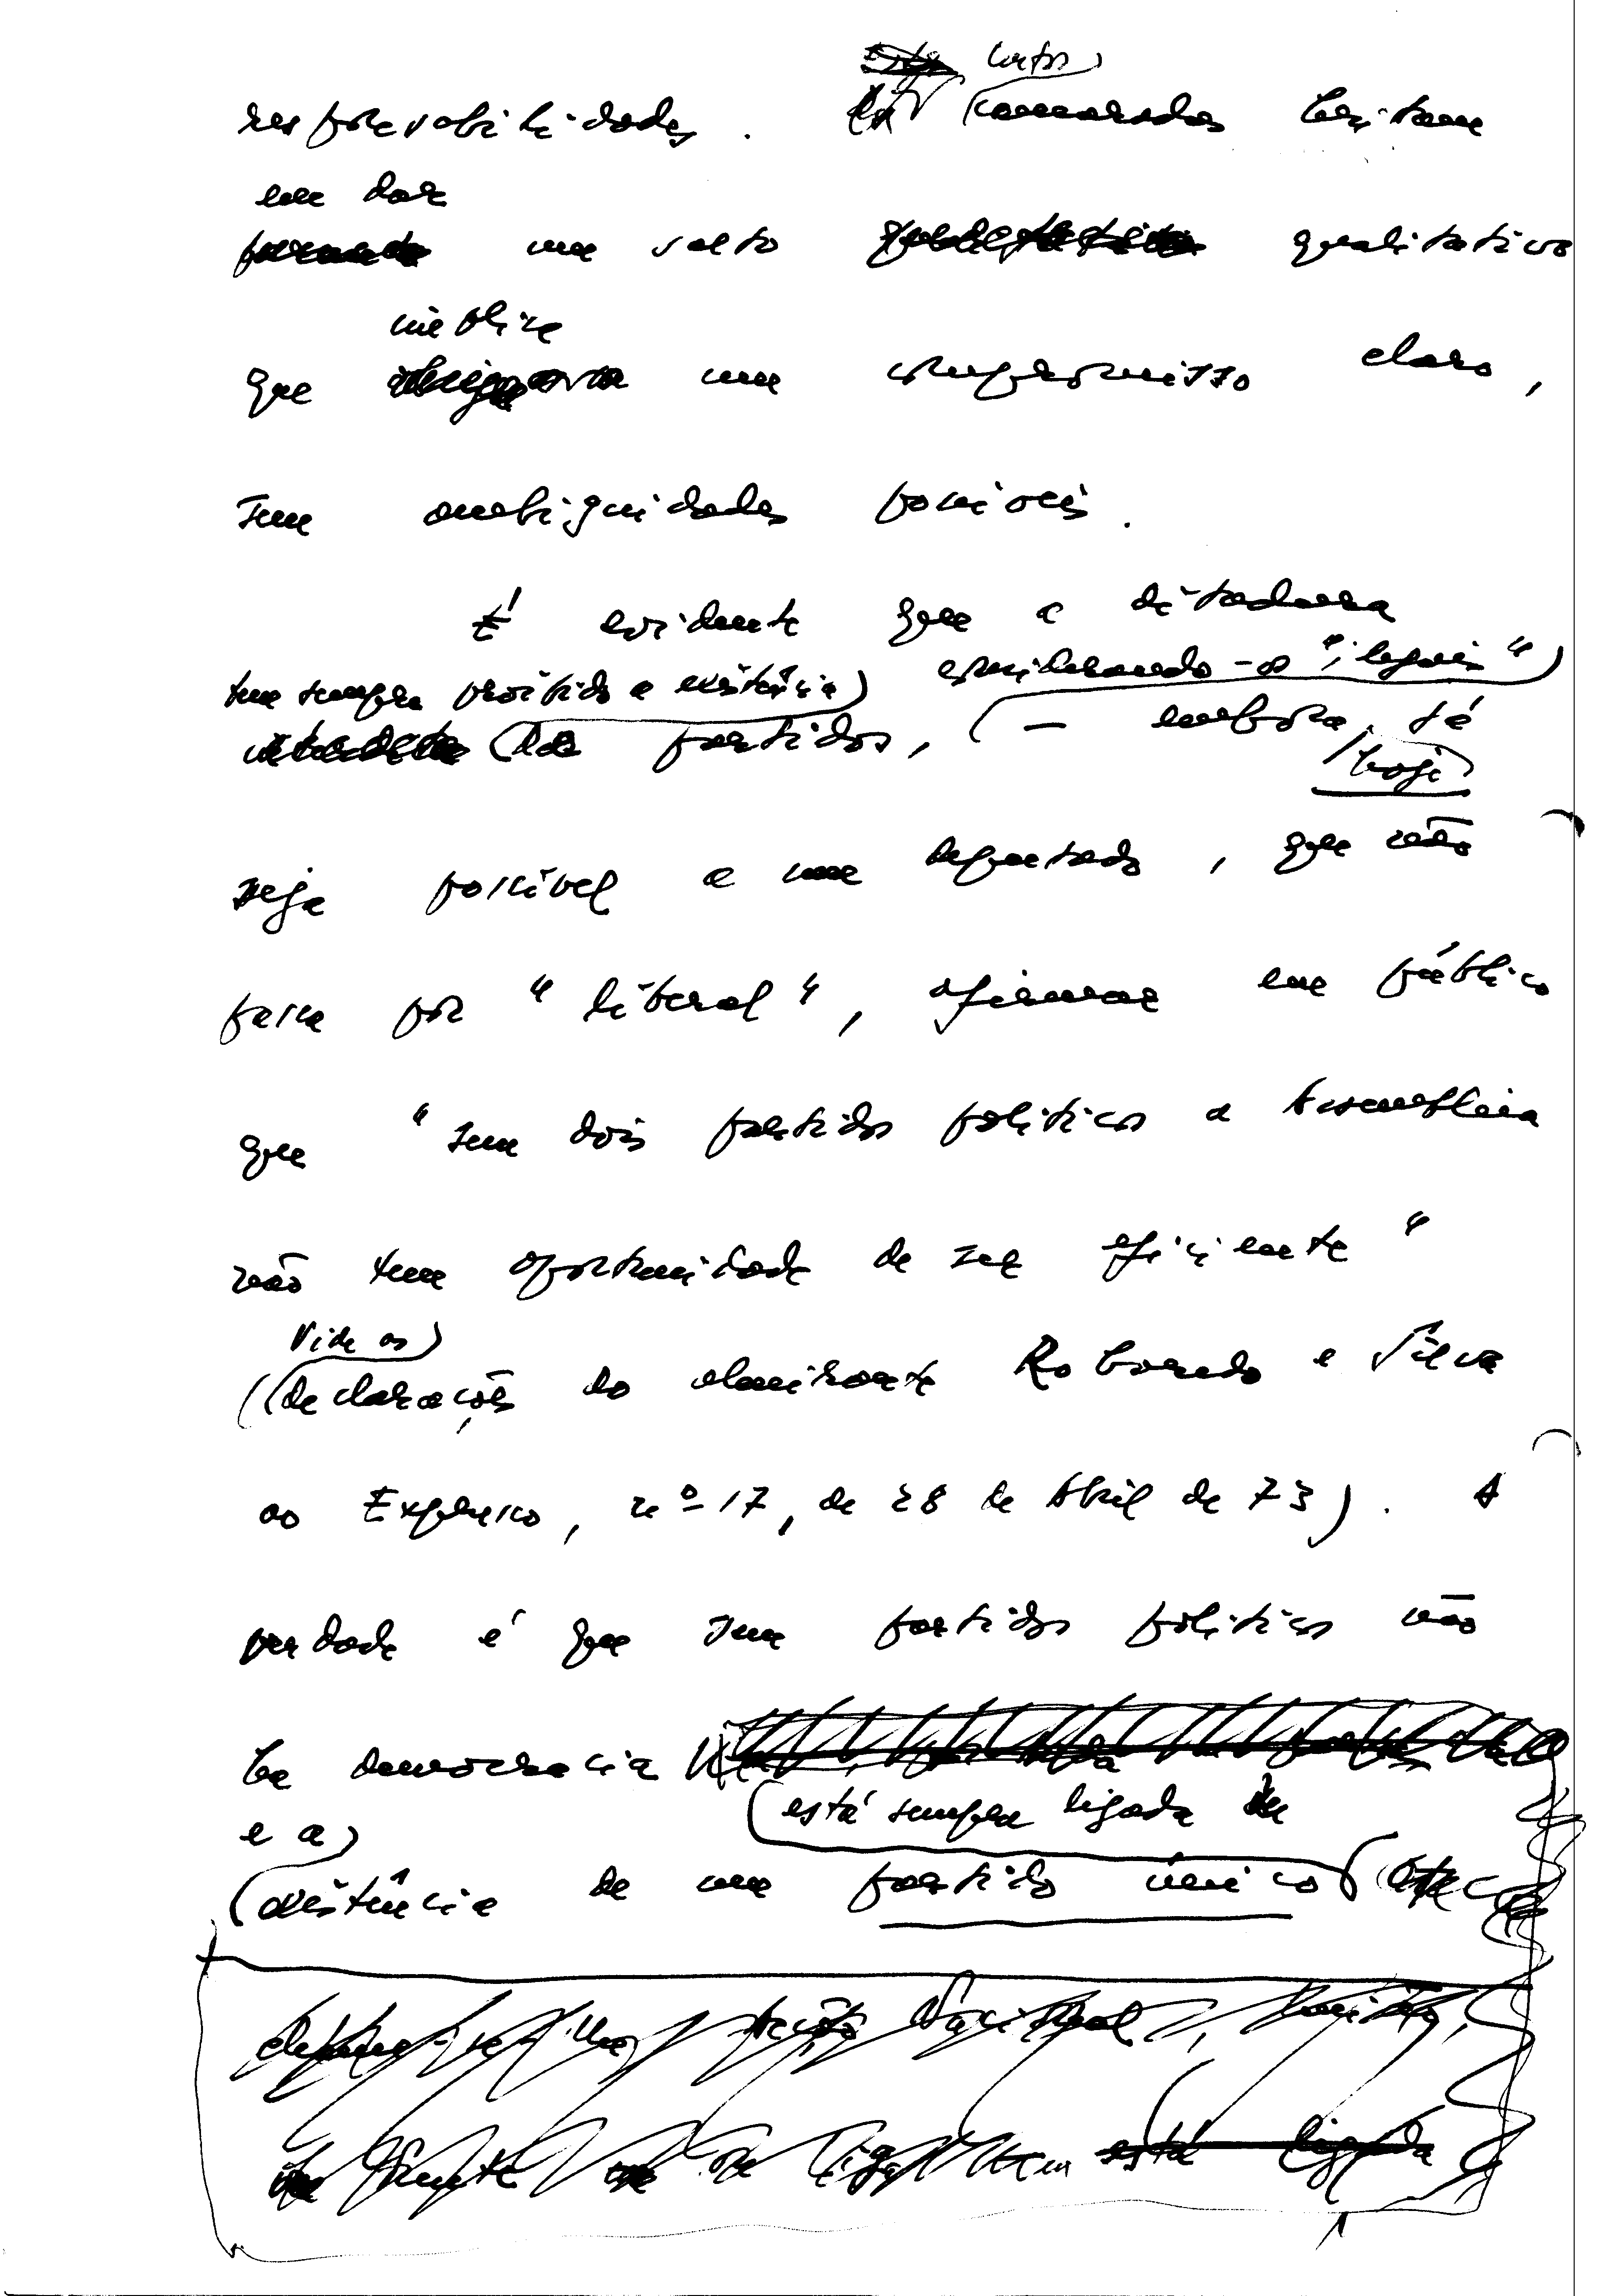 certos
responsabilidades. camaradas hesitam
em dar
um salto qualitativo
que implica um compromisso claro,
sem ambiguidades possíveis.
É evidente que a ditadura
tem sempre proibido a existência considerando-os "ilegais"
de partidos, — embora, já
hoje
seja possível a um deputado, que não
passa por "liberal", afirmar em público
que "sem dois partidos políticos a Assembleia
não tem oportunidade de ser eficiente"
Vide as
(declarações do almirante Roboredo e Silva
ao Expresso, nº 17, de 28 de Abril de 73). A
verdade é que sem partidos políticos não
há democracia
está sempre ligada
e a
existência de um partido único
está ligada